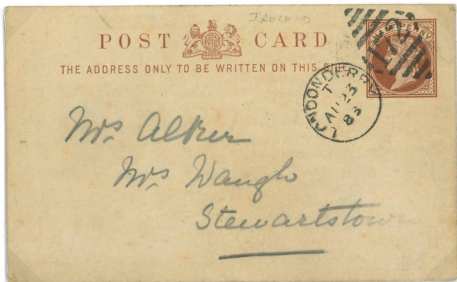 IRELAND
POST CARD
THE ADDRESS ONLY TO BE WRITTEN ON THIS SIDE
LONDONDERRY
T
AU 23
83
Mrs Alker
Mrs Waugh
Stewartstown